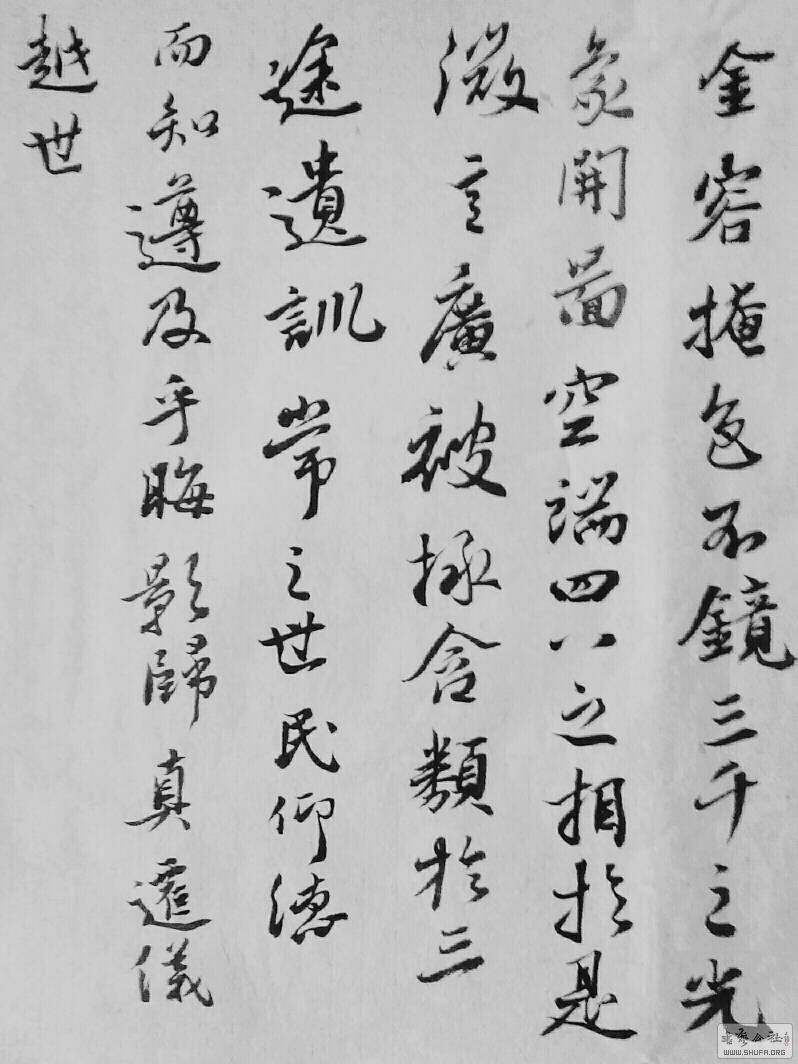 金容掩色不鏡三千之光
象開圖空端四八之相於是
微言廣被拯含類於三
途遺訓常之世民仰德
而知遵及乎晦影歸真遷儀
越世
WWW.SHUFA.ORG